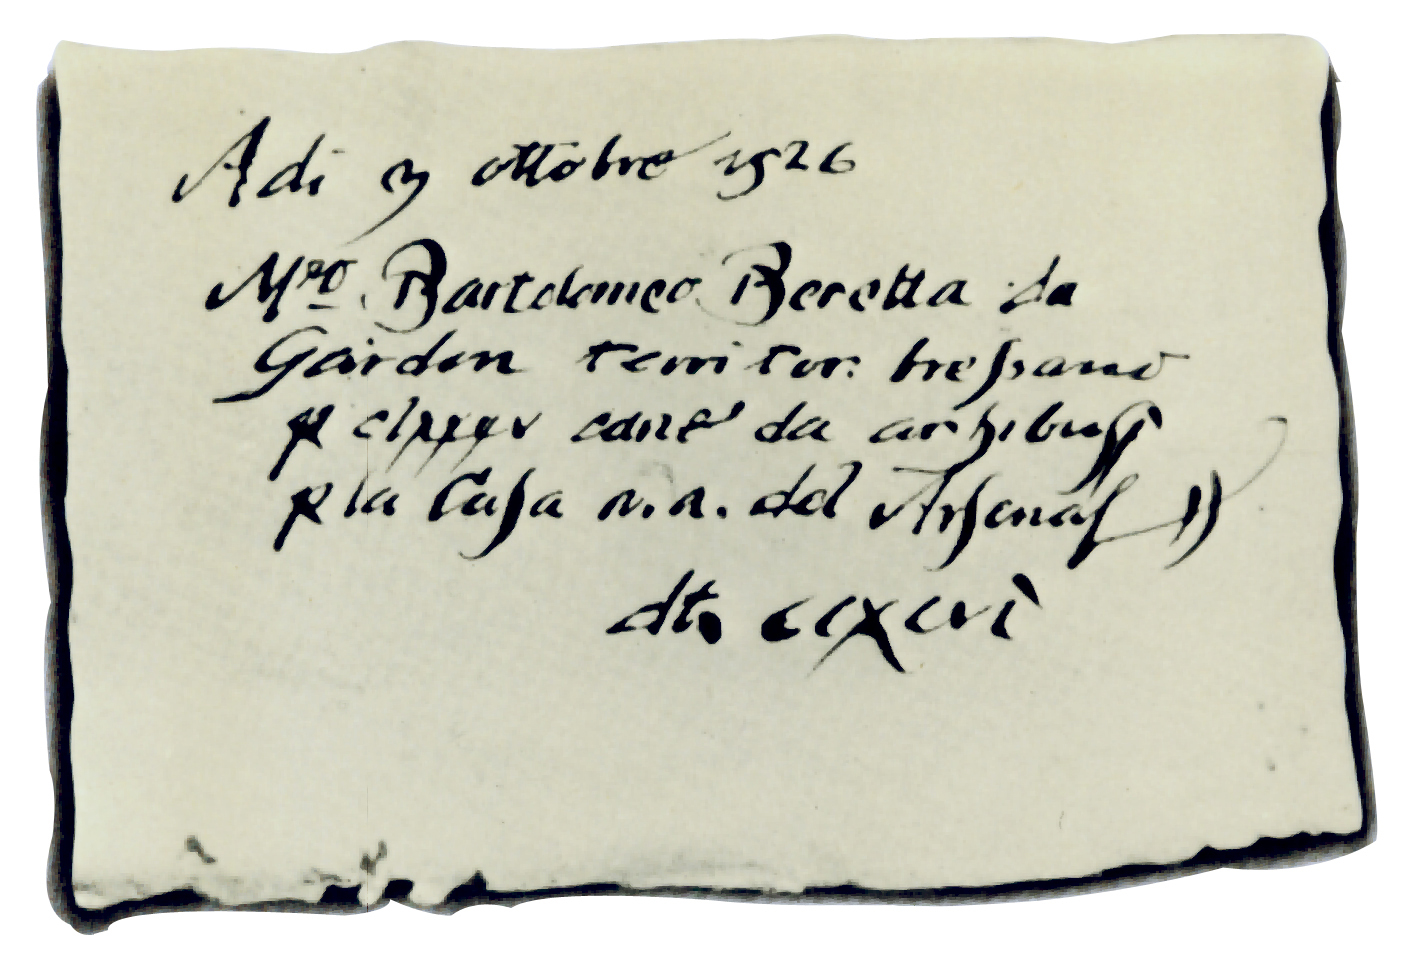 Adi 3 ottobre 1526
Mro Bartolomeo Beretta da
Gardon territor: bressano
p clxxxv cane da archibusi
p la Casa n.a. del Arsenal
dt. ccxcvi